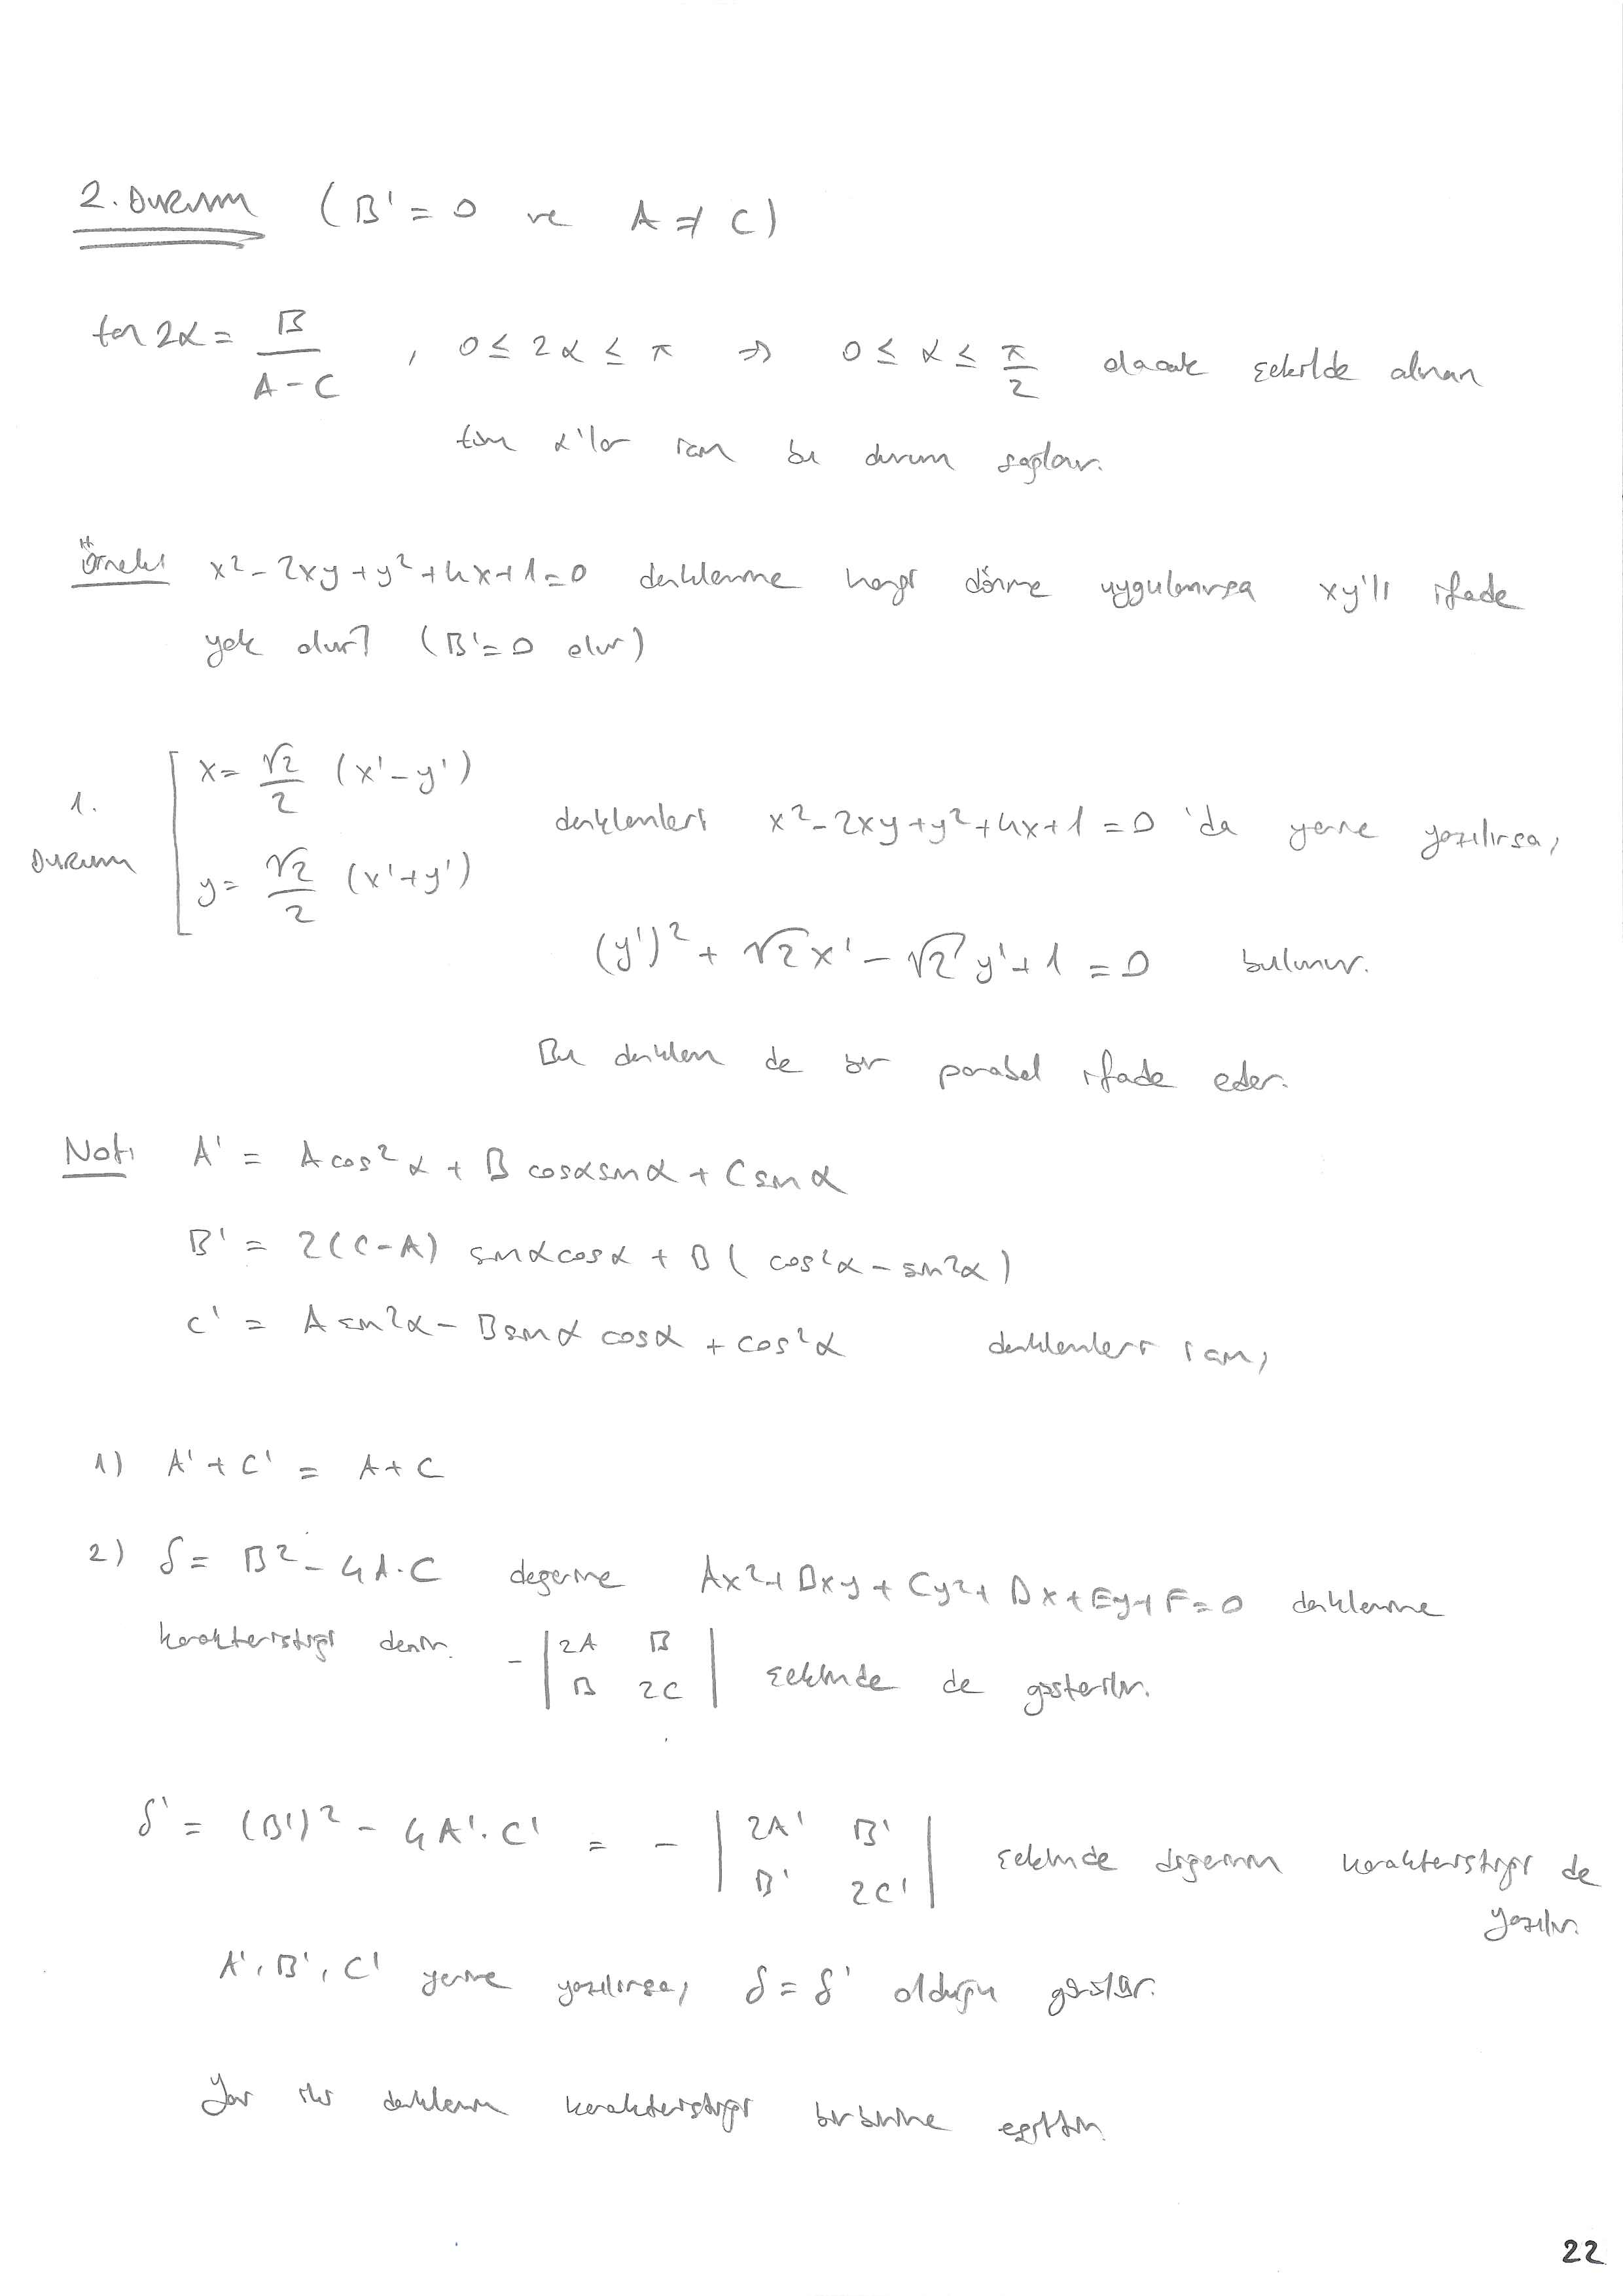 2. Durum (B' = 0 ve A ≠ C)
tan 2α = B / (A - C) , 0 ≤ 2α ≤ π ⇒ 0 ≤ α ≤ π/2 olacak şekilde alınan
tüm α'lar için bu durum sağlanır.
Örnek: x² - 2xy + y² + 4x + 1 = 0 denklemine hangi dönme uygulanırsa xy'li ifade
yok olur? (B' = 0 olur)
1. Durum
x = √2/2 (x' - y')
y = √2/2 (x' + y')
denklemleri x² - 2xy + y² + 4x + 1 = 0 'da yerine yazılırsa,
(y')² + √2 x' - √2 y' + 1 = 0 bulunur.
Bu denklem de bir parabol ifade eder.
Not: A' = A cos²α + B cosα sinα + C sinα
B' = 2(C - A) sinα cosα + B ( cos²α - sin²α )
C' = A sin²α - B sinα cosα + cos²α denklemleri için,
1) A' + C' = A + C
2) δ = B² - 4A.C değerine Ax² + Bxy + Cy² + Dx + Ey + F = 0 denklemine
karakteristiği denir. - | 2A B ; B 2C | şeklinde de gösterilir.
δ' = (B')² - 4A'.C' = - | 2A' B' ; B' 2C' | şeklinde diğerinin karakteristiği de
yazılır.
A', B', C' yerine yazılırsa, δ = δ' olduğu görülür.
Yani iki denklemin karakteristiği birbirine eşittir.
22